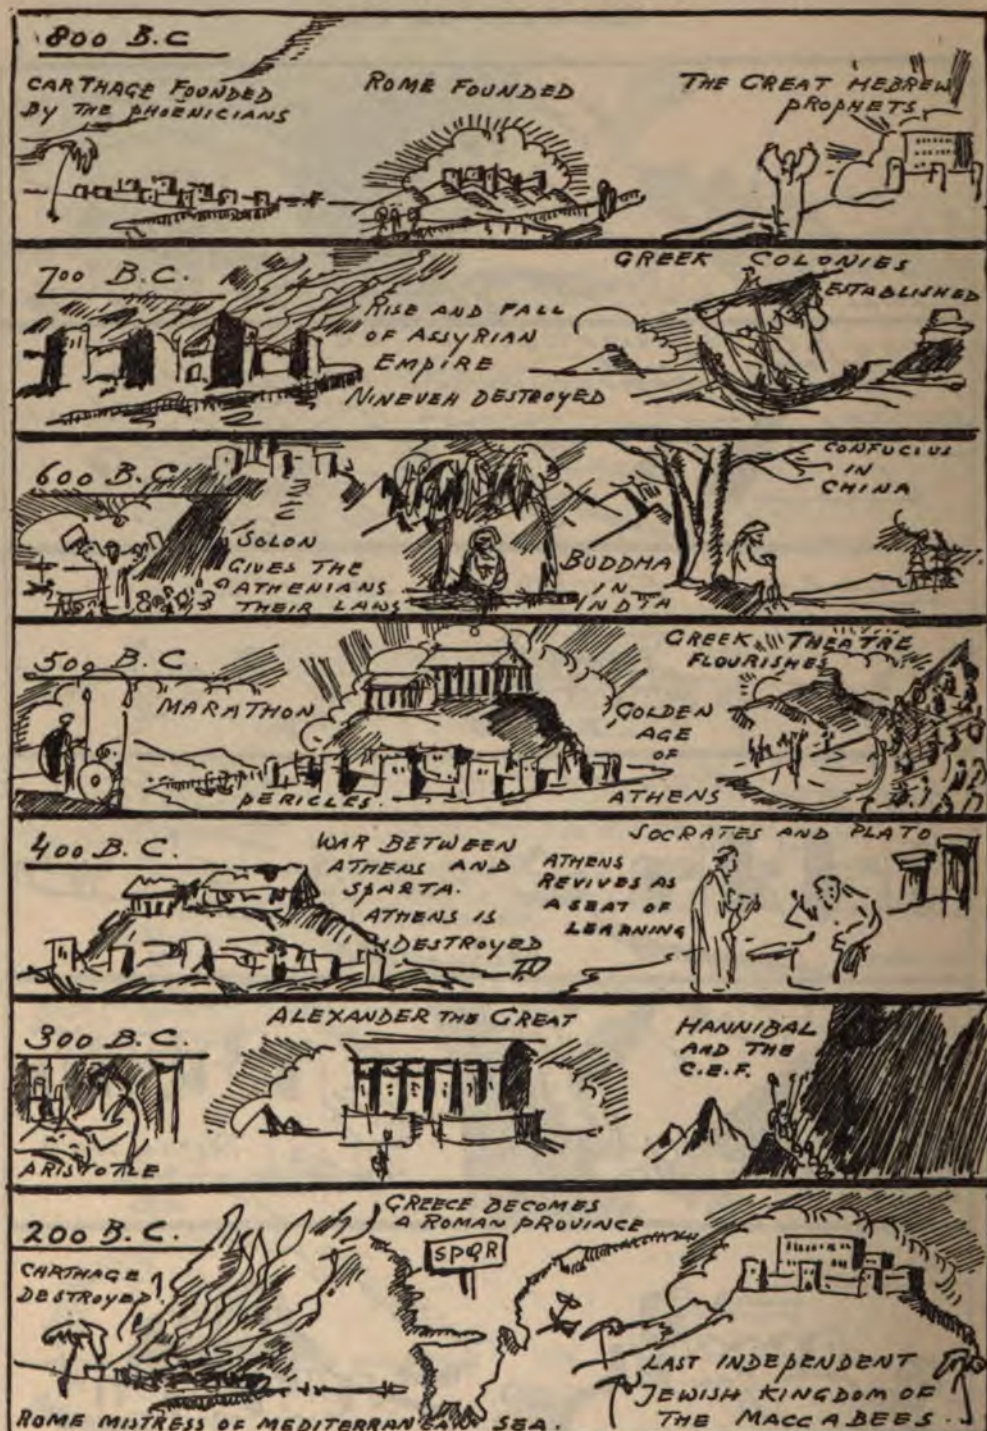 800 B.C
CARTHAGE FOUNDED
BY THE PHOENICIANS
ROME FOUNDED
THE GREAT HEBREW
PROPHETS
700 B.C.
RISE AND FALL
OF ASSYRIAN
EMPIRE
NINEVEH DESTROYED
GREEK COLONIES
ESTABLISHED
600 B.C
SOLON
GIVES THE
ATHENIANS
THEIR LAWS
BUDDHA
IN
INDIA
CONFUCIUS
IN
CHINA
500 B.C.
MARATHON
PERICLES.
GOLDEN
AGE
OF
ATHENS
GREEK THEATRE
FLOURISHES
400 B.C.
WAR BETWEEN
ATHENS AND
SPARTA.
ATHENS IS
DESTROYED
ATHENS
REVIVES AS
A SEAT OF
LEARNING
SOCRATES AND PLATO
300 B.C.
ARISTOTLE
ALEXANDER THE GREAT
HANNIBAL
AND THE
C.E.F.
200 B.C.
CARTHAGE
DESTROYED!
GREECE BECOMES
A ROMAN PROVINCE
SPQR
LAST INDEPENDENT
JEWISH KINGDOM OF
THE MACCABEES.
ROME MISTRESS OF MEDITERRANEAN SEA.